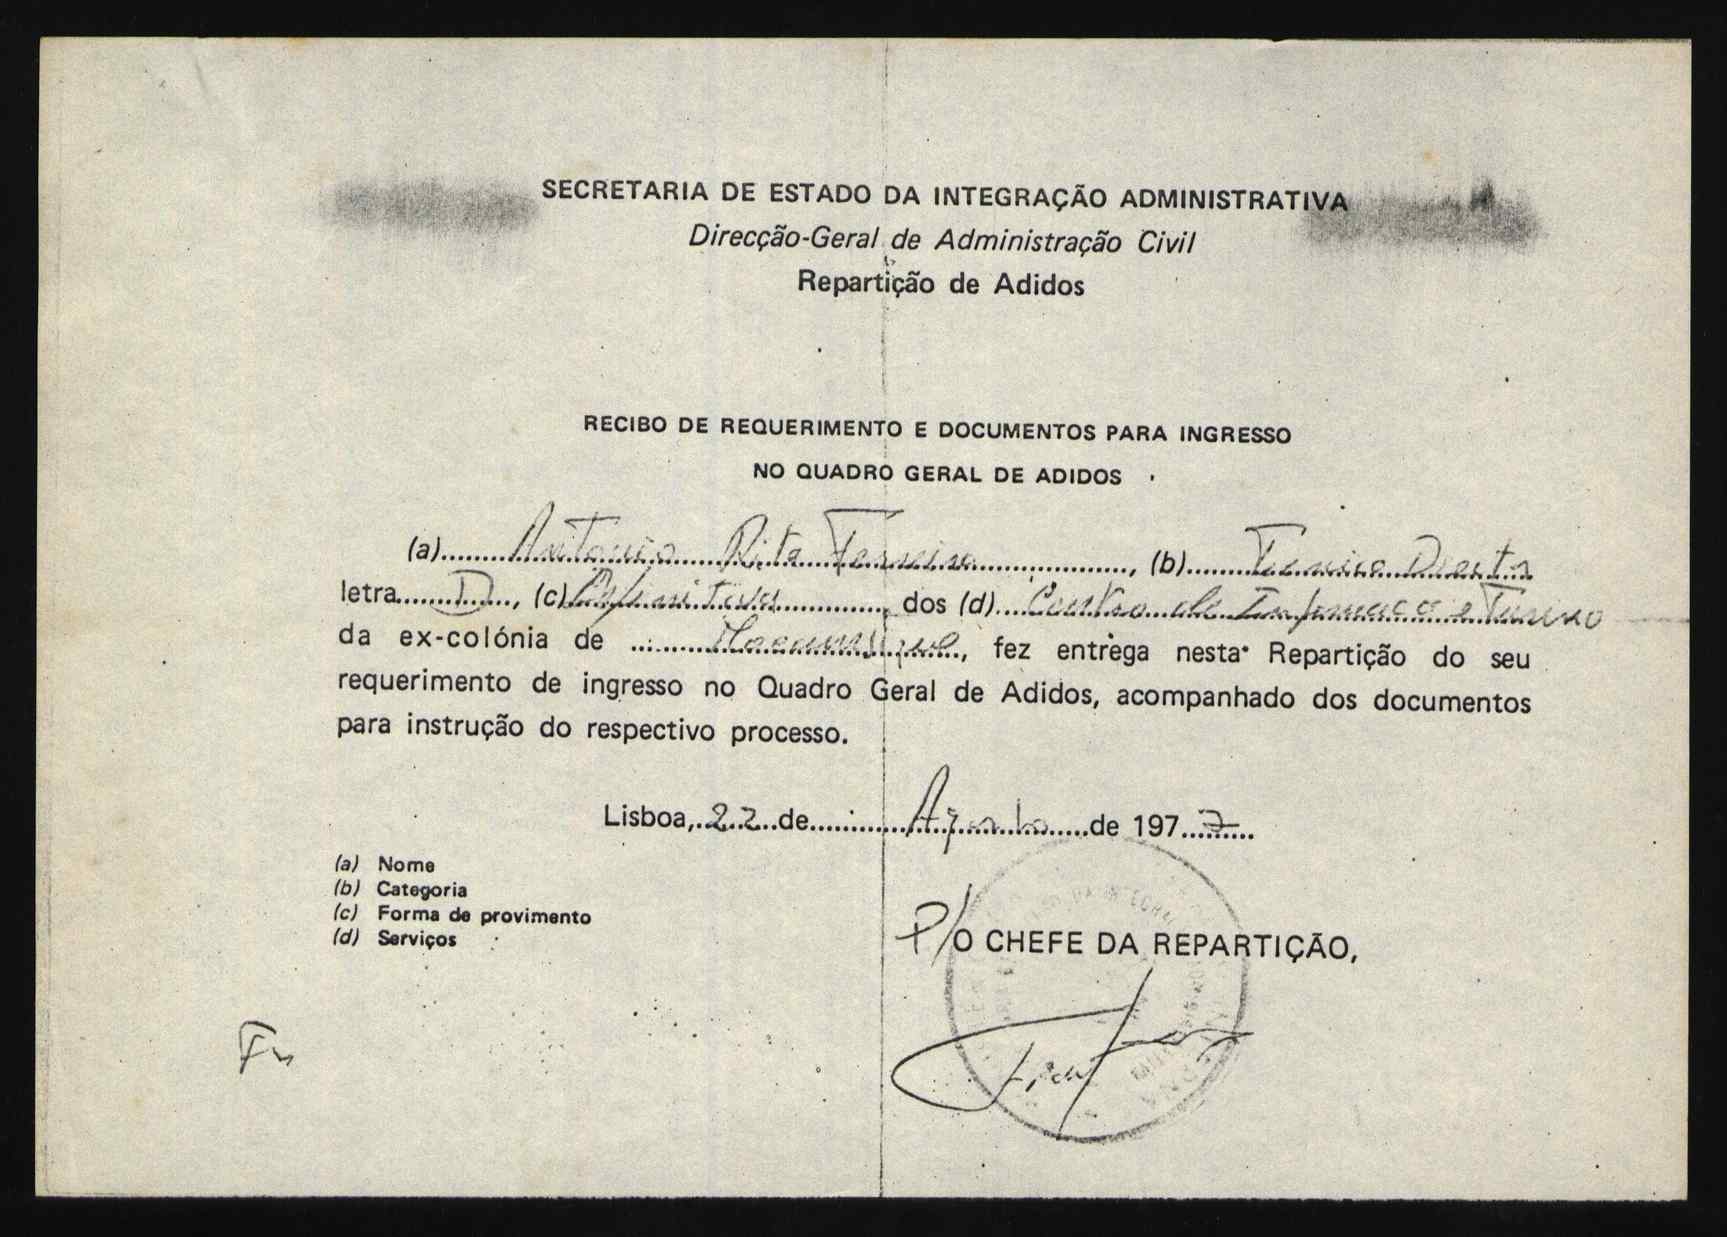 SECRETARIA DE ESTADO DA INTEGRAÇÃO ADMINISTRATIVA
Direcção-Geral de Administração Civil
Repartição de Adidos
RECIBO DE REQUERIMENTO E DOCUMENTOS PARA INGRESSO
NO QUADRO GERAL DE ADIDOS
(a) António Rita Ferreira, (b) Técnico Director
letra D, (c) Definitiva, dos (d) Centro de Informação e Turismo
da ex-colónia de Moçambique, fez entrega nesta Repartição do seu
requerimento de ingresso no Quadro Geral de Adidos, acompanhado dos documentos
para instrução do respectivo processo.
Lisboa, 22 de Agosto de 1977
(a) Nome
(b) Categoria
(c) Forma de provimento
(d) Serviços
P/O CHEFE DA REPARTIÇÃO,